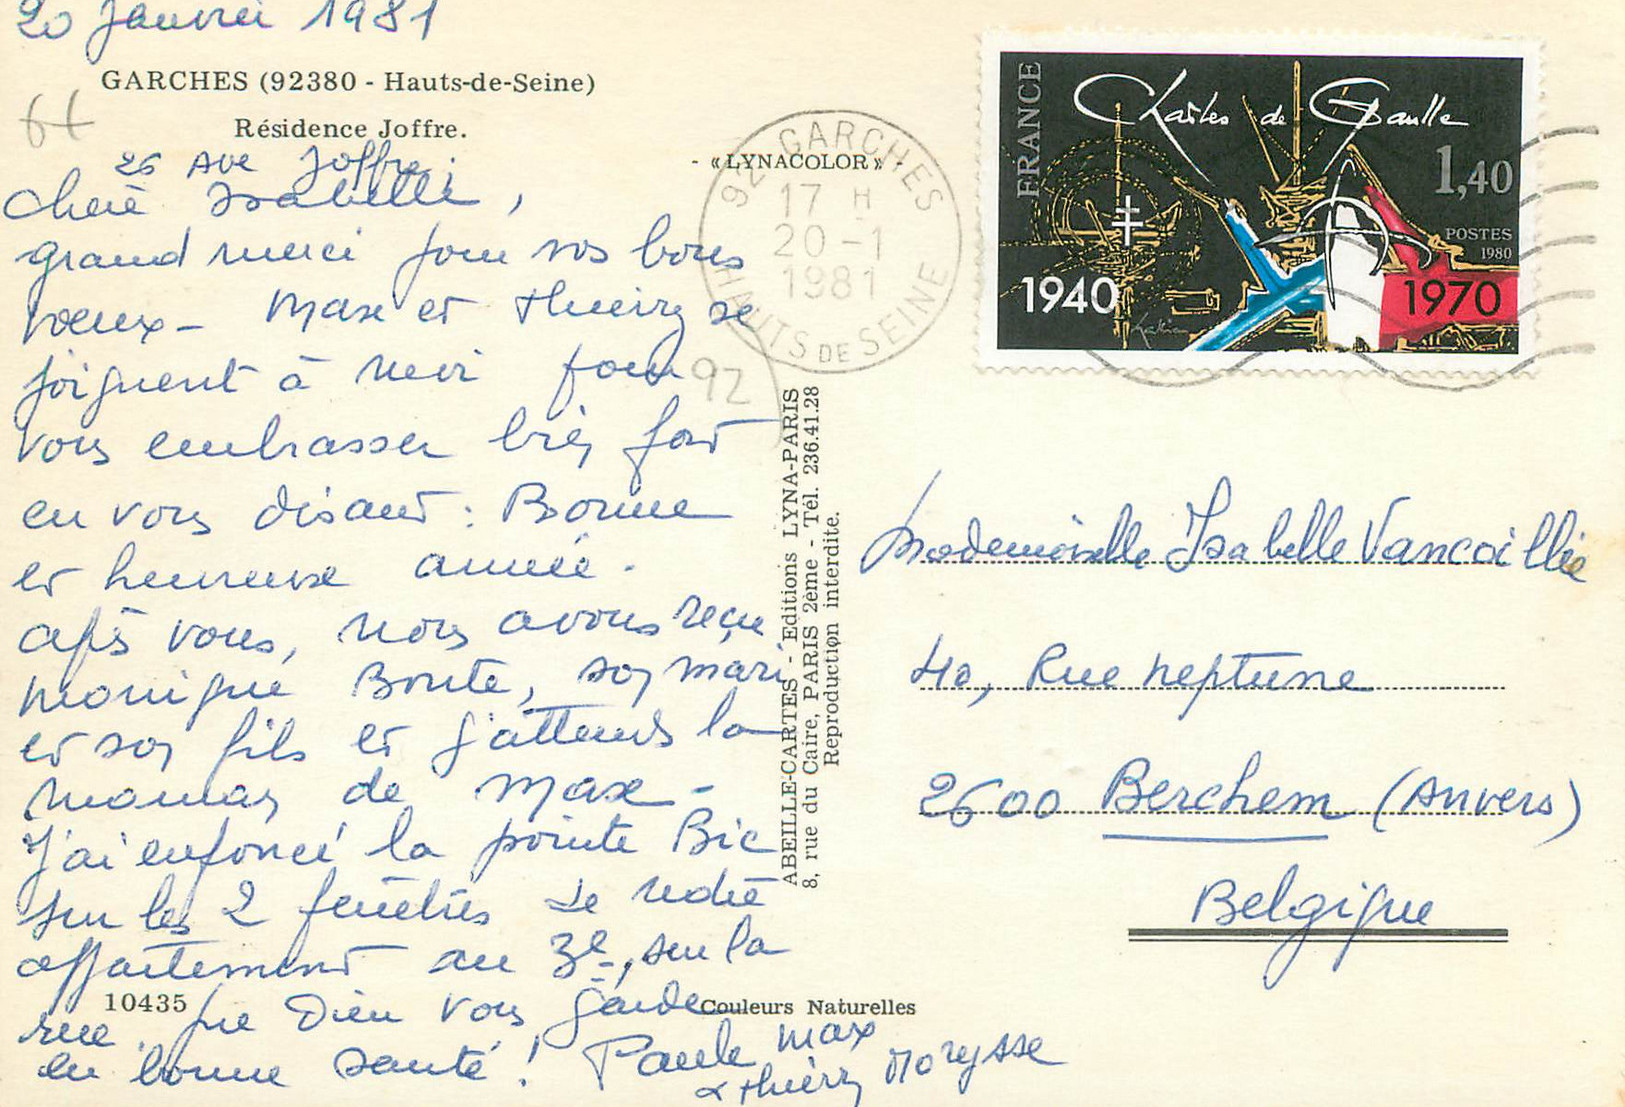 20 Janvier 1981
GARCHES (92380 - Hauts-de-Seine)
Résidence Joffre.
26 Ave Joffre.
Chère Isabelle,
grand merci pour vos bons
voeux - Max et Thierry se
joignent à moi pour
vous embrasser bien fort
en vous disant : Bonne
et heureuse année.
après vous, nous avons reçu
Monique Bonte, son mari
et son fils et j'attends la
maman de Max -
J'ai enfoncé la pointe Bic
sur les 2 fenêtres de notre
appartement au 3e, sur la
rue. que Dieu vous garde
en bonne santé !
Paule Max
& Thierry Morysse
10435
Couleurs Naturelles
- « LYNACOLOR » -
ABEILLE-CARTES - Editions LYNA-PARIS
8, rue du Caire, PARIS 2ème - Tél. 236.41.28
Reproduction interdite.
92 GARCHES
17 H
20 - 1
1981
HAUTS DE SEINE
92
FRANCE
Charles de Gaulle
1,40
POSTES
1980
1940
1970
Mademoiselle Isabelle Vancaillie
40, Rue Neptune
2600 Berchem (Anvers)
Belgique